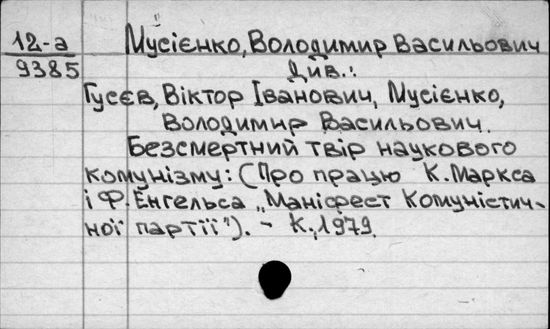 12-а
9385
Мусієнко, Володимир Васильович
Див.:
Гусєв, Віктор Іванович, Мусієнко,
Володимир Васильович.
Безсмертний твір наукового
комунізму: (Про працю К. Маркса
і Ф. Енгельса „Маніфест Комуністич-
ної партії"). - К., 1979.